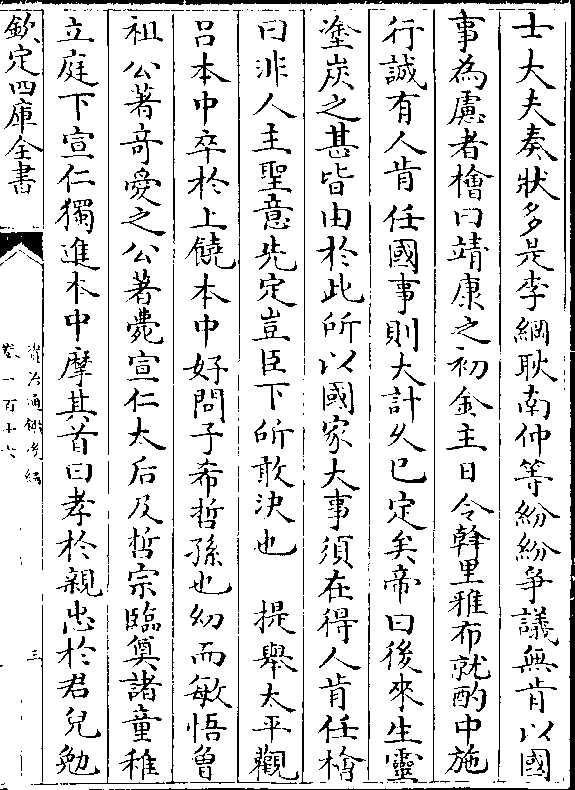 士大夫奏狀多是李綱耿南仲等紛紛爭議無肯以國
事為慮者檜曰靖康之初金主日令斡里雅布就酌中施
行誠有人肯任國事則大計久已定矣帝曰後來生靈
塗炭之甚皆由於此所以國家大事須在得人肯任檜
曰非人主聖意先定豈臣下所敢決也　提舉太平觀
呂本中卒於上饒本中好問子希哲孫也幼而敏悟曾
祖公著奇愛之公著薨宣仁太后及哲宗臨奠諸童稚
立庭下宣仁獨進本中摩其首曰孝於親忠於君兒勉
欽定四庫全書
資治通鑑後編
卷一百十六
三